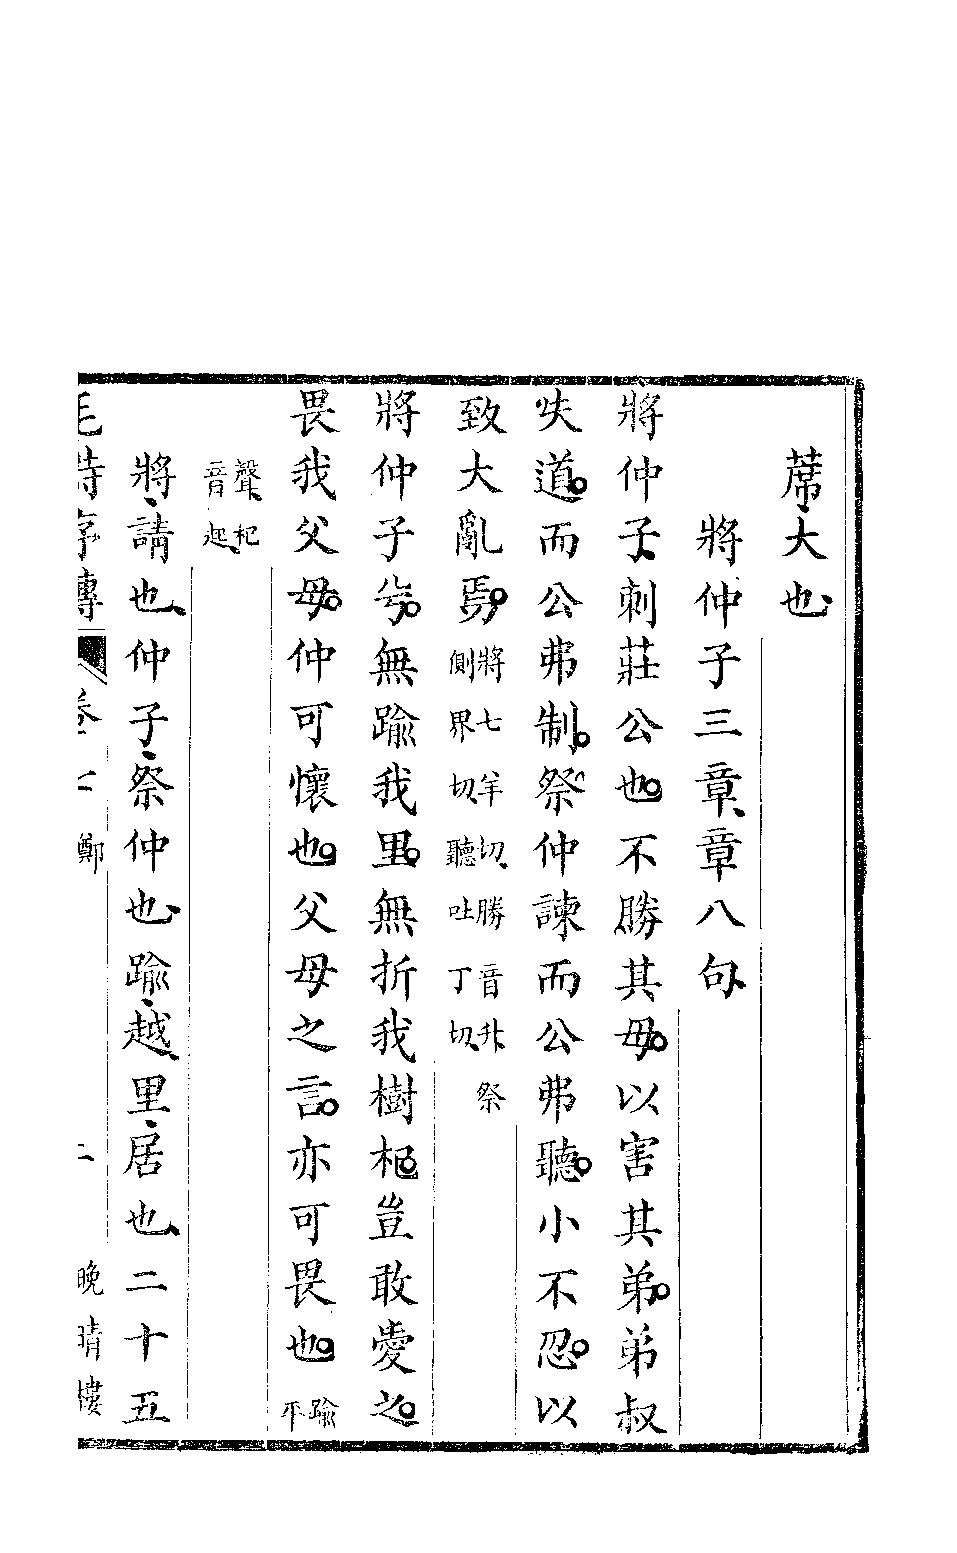 蓆大也
將仲子三章章八句
將仲子刺莊公也不勝其母以害其弟弟叔
失道而公弗制祭仲諫而公弗聽小不忍以
致大亂焉將七羊切勝音升祭側界切聽吐丁切
將仲子兮無踰我里無折我樹杞豈敢愛之
畏我父母仲可懷也父母之言亦可畏也踰平
聲杞音起
將請也仲子祭仲也踰越里居也二十五
毛詩序傳 卷七 鄭 二 晚晴樓